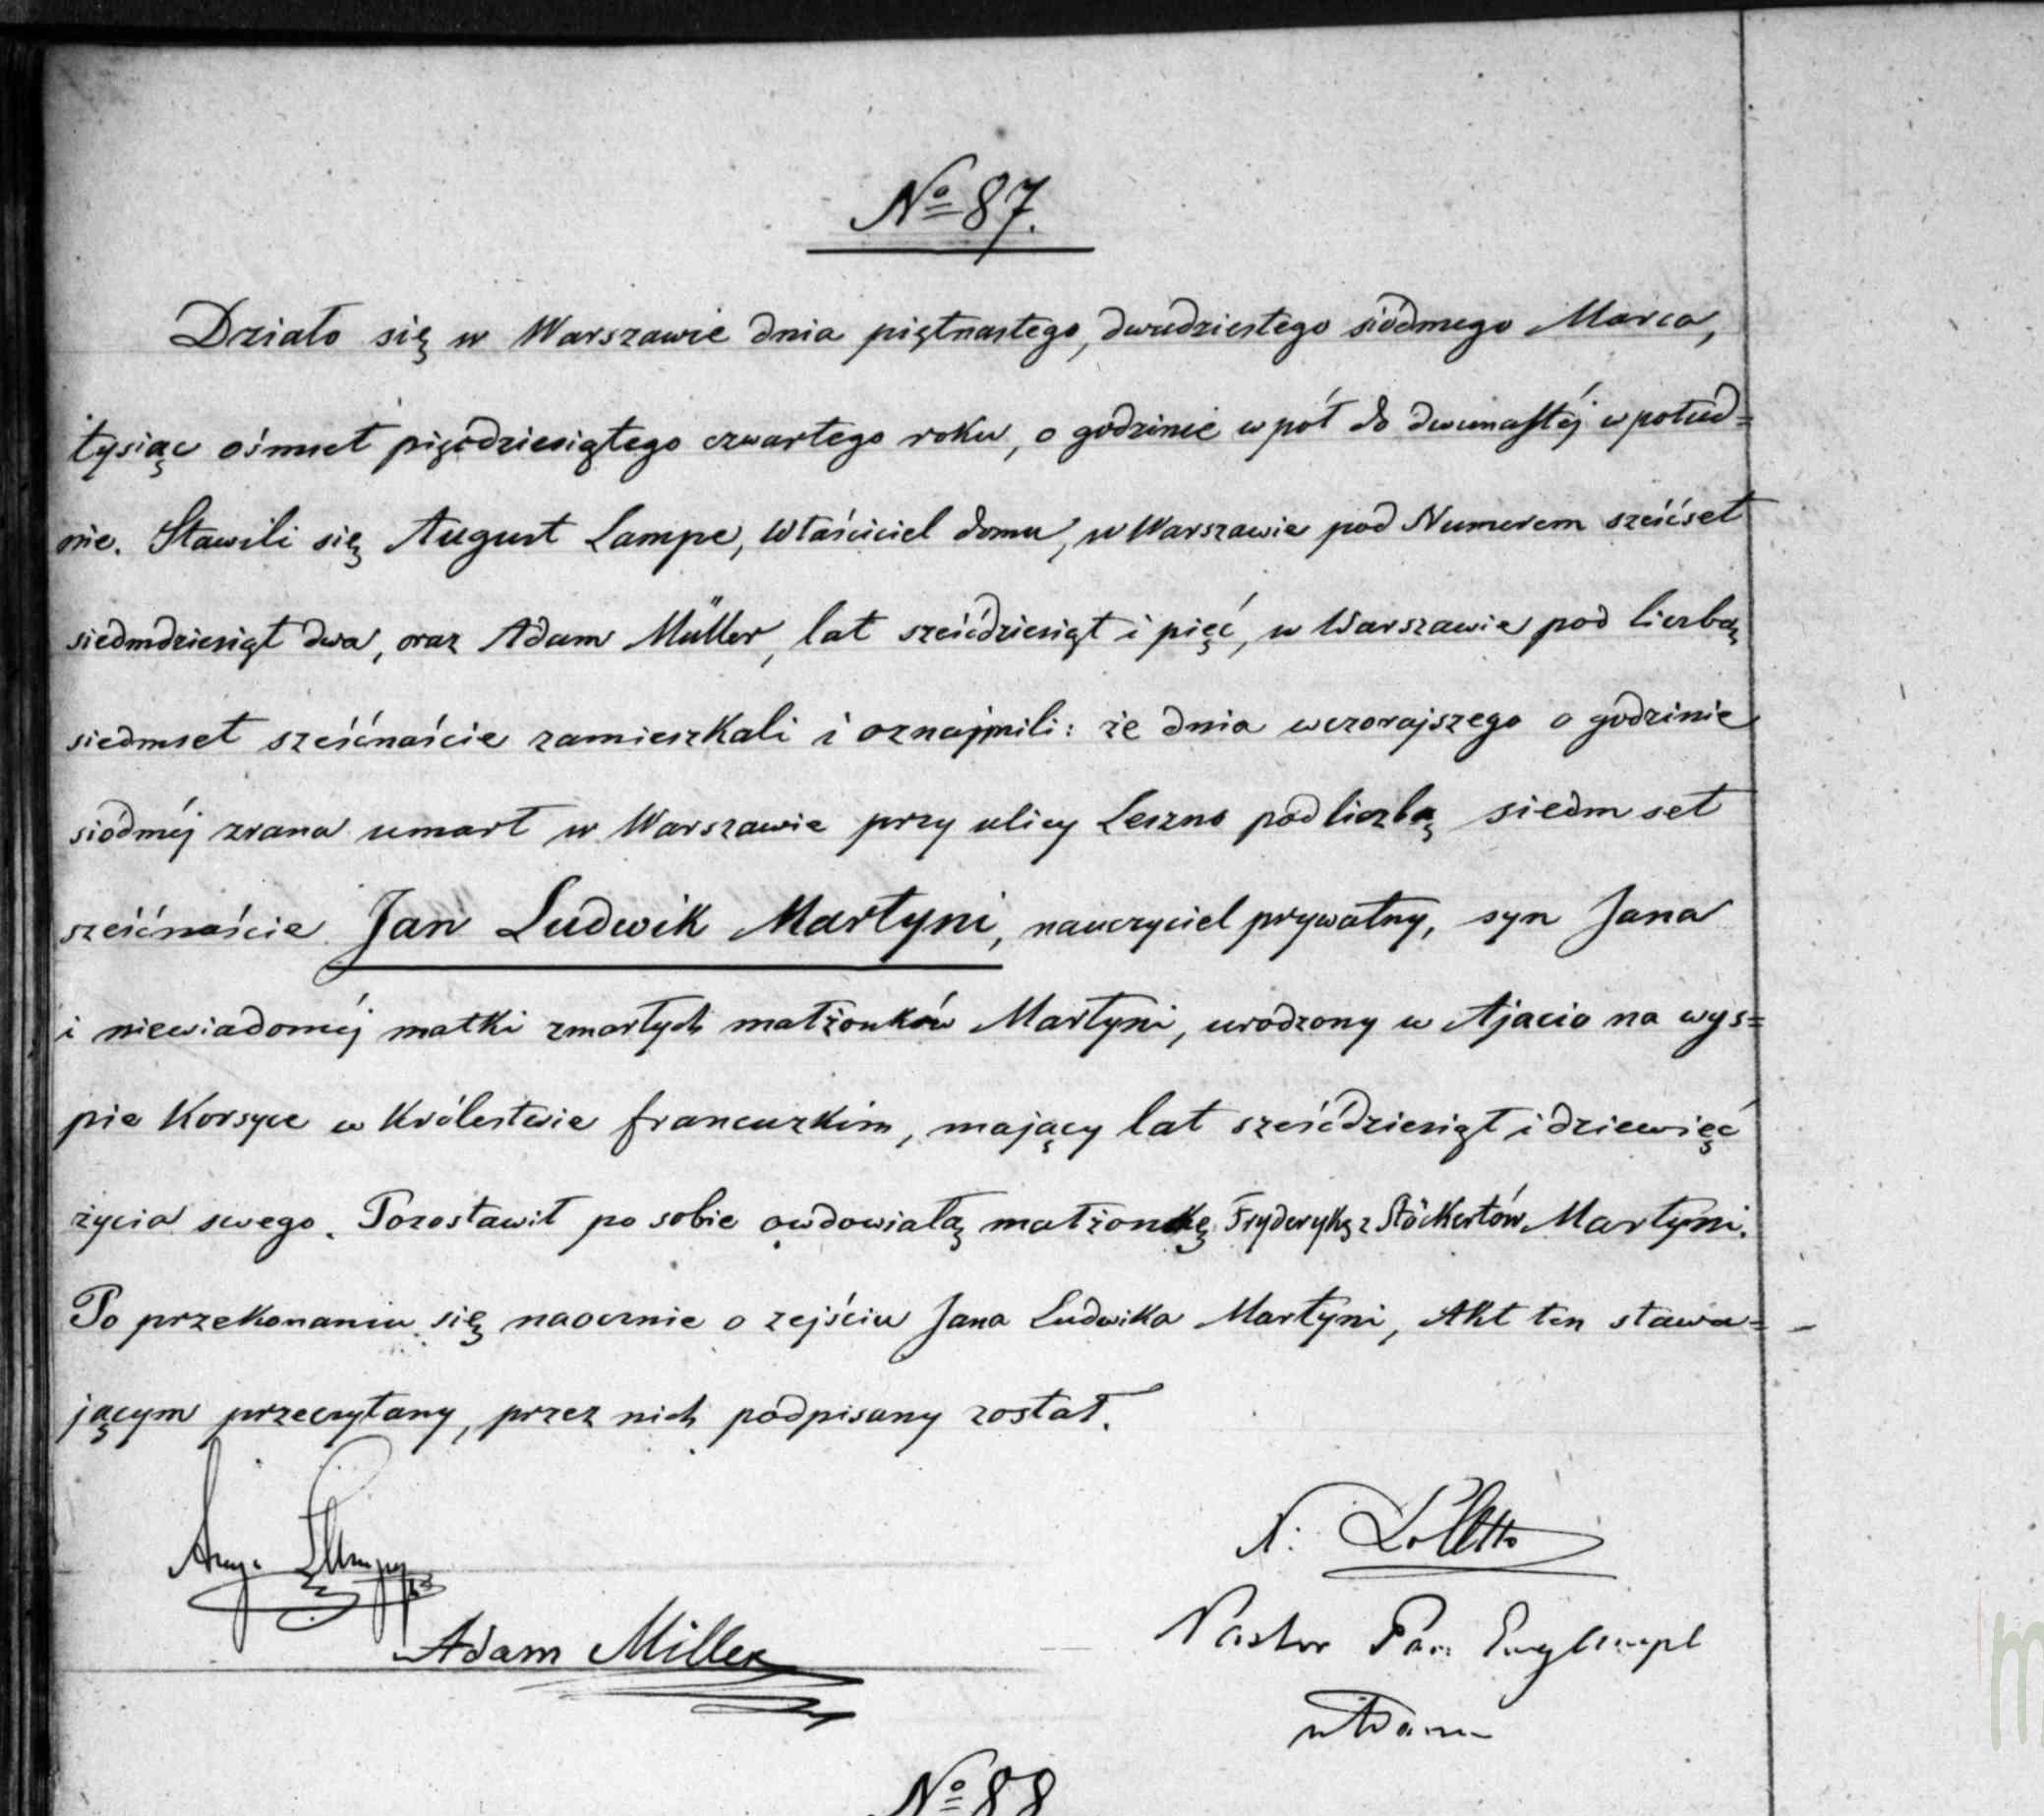 № 87.
Działo się w Warszawie dnia piętnastego, dwudziestego siódmego Marca,
tysiąc ośmset pięćdziesiątego czwartego roku, o godzinie wpół do dwunastéj w połud=
nie. Stawili się August Lampe, Właściciel domu, w Warszawie pod Numerem sześćset
siedmdziesiąt dwa, oraz Adam Müller, lat sześćdziesiąt i pięć, w Warszawie pod liczbą
siedmset sześćnaście zamieszkali i oznajmili: że dnia wczorajszego o godzinie
siódméj zrana umarł w Warszawie przy ulicy Leszno pod liczbą siedm set
sześćnaście Jan Ludwik Martyni, nauczyciel prywatny, syn Jana
i niewiadoméj matki zmarłych małżonków Martyni, urodzony w Ajacio na wys=
pie Korsyce w Królestwie francuzkim, mający lat sześćdziesiąt i dziewięć
życia swego. Pozostawił po sobie owdowiałą małżonkę Fryderykę z Stöckertów Martyni.
Po przekonaniu się naocznie o zejściu Jana Ludwika Martyni, Akt ten stawa=
jącym przeczytany, przez nich podpisany został.
Adam Miller
Pastor
№ 88